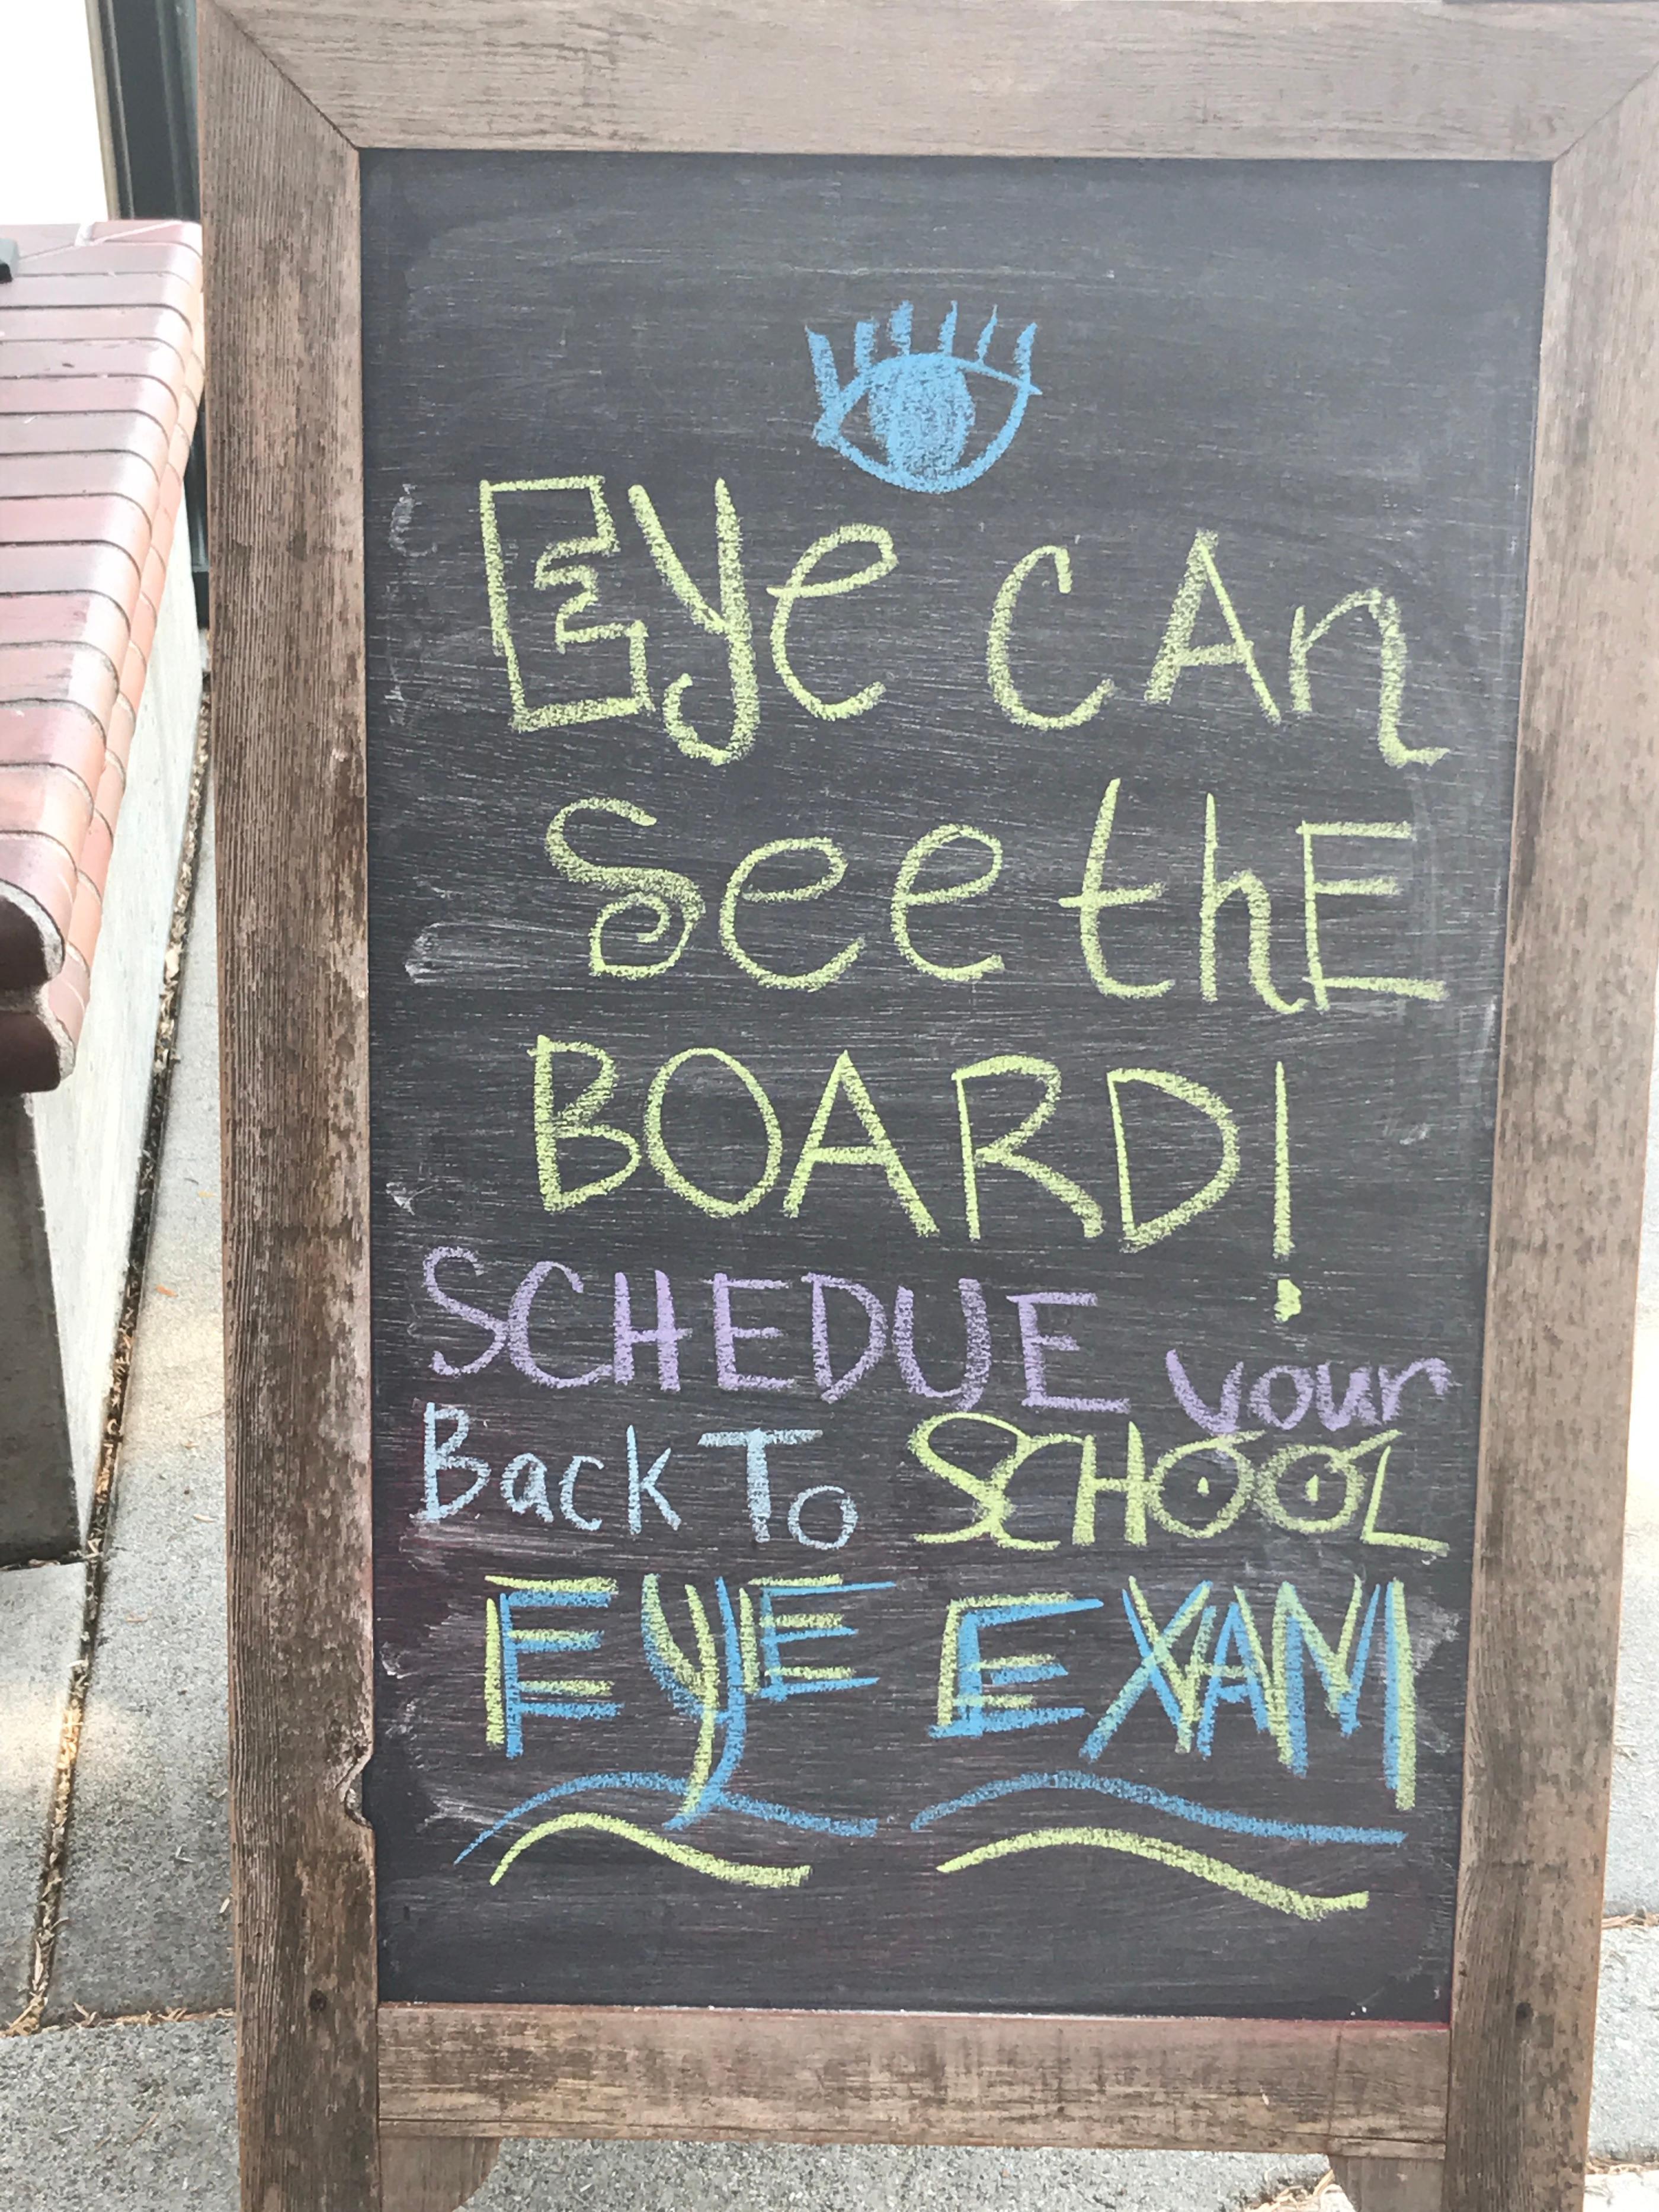 Eye CAn
See thE
BOARD!
SCHEDUE your
Back To SCHOOL
EyE EXAM